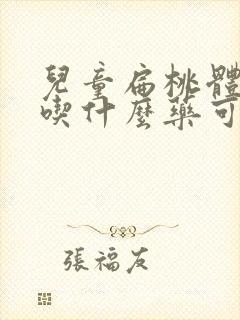 兒童扁桃體
喫什麼藥可
張福友